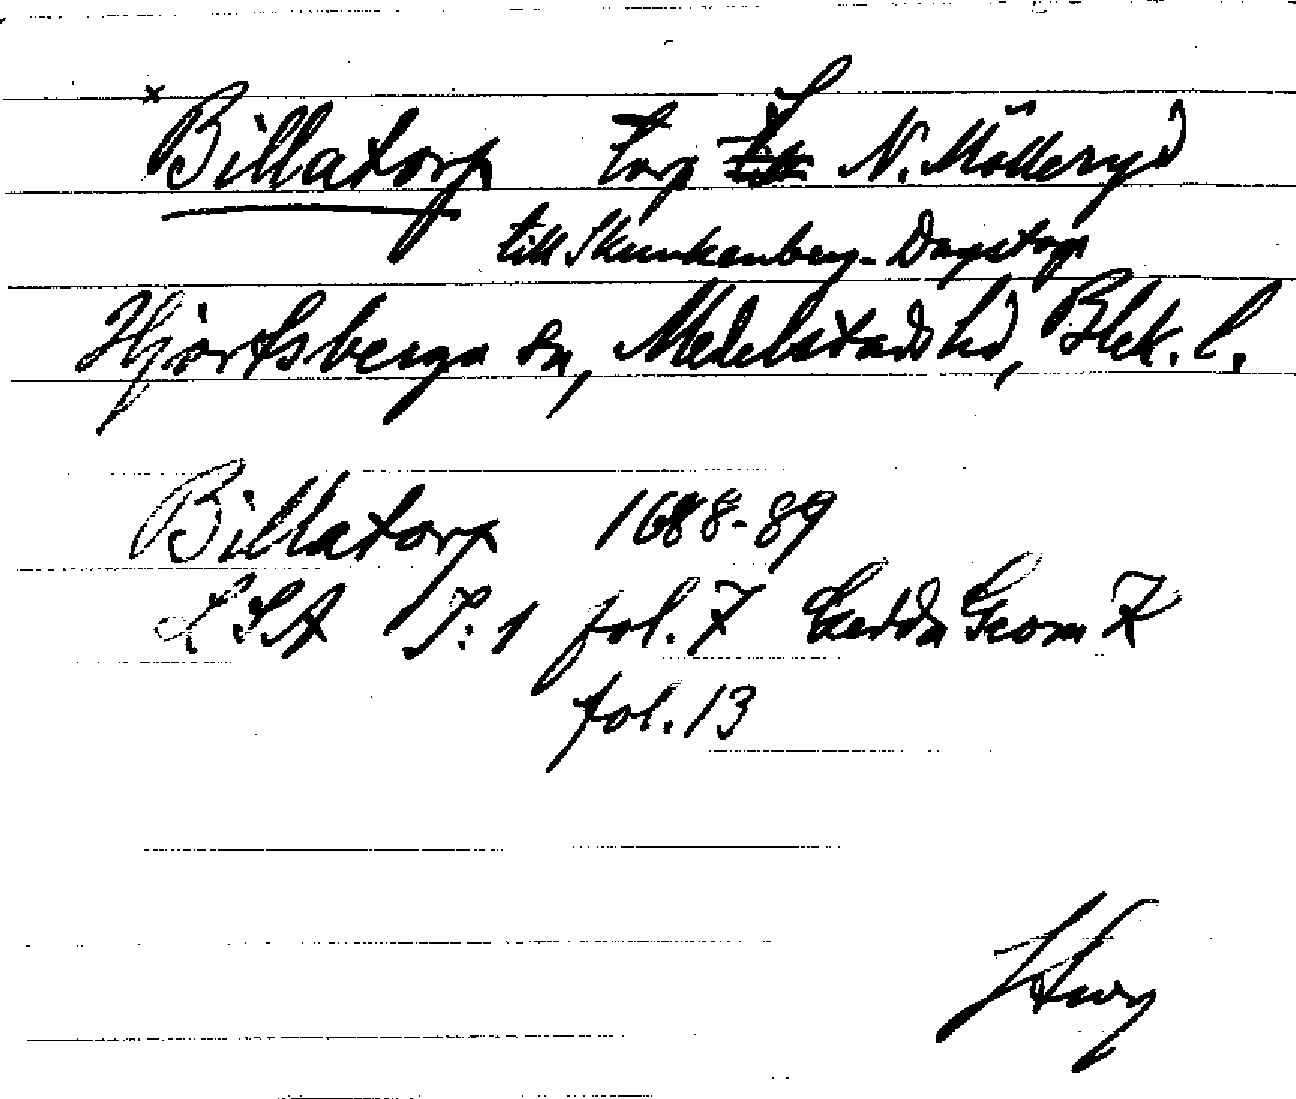 × Billatorp torp till N. Mölleryd
till Skunkenberg-Dagstorp
Hjortsberga sn, Medelstads hd, Blek. l.
Billatorp 1688-89
LSA P:1 fol. 7 Gedda Geom K
fol. 13